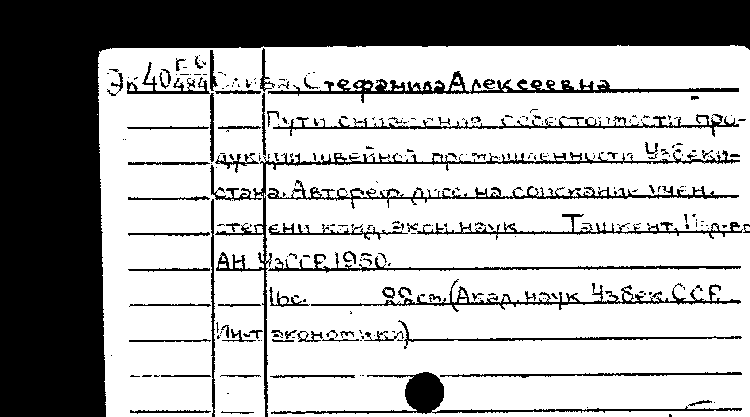 Эк40 Г-6/484 Слива, Стефанида Алексеевна
Пути снижения себестоимости про-
дукции швейной промышленности Узбеки-
стана. Автореф. дисс. на соискание учен.
степени канд. экон. наук. Ташкент, Изд-во
АН УзССР, 1950.
16с. 22 см. (Акад. наук Узбек. ССР.
Ин-т экономики)